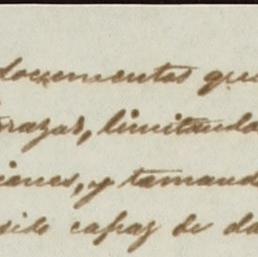 documentos que
razas, limitando
iones, y tomand
sido capaz de da